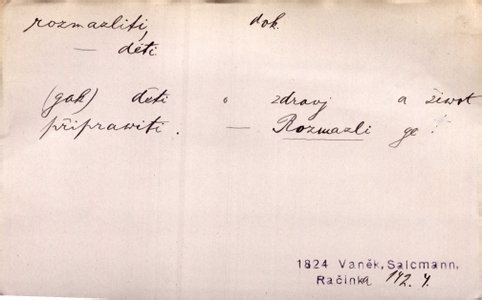 rozmazliti, dok.
— děti
(gak) děti o zdrawj a život
připrawiti. — Rozmazli ge
1824 Vaněk, Salcmann,
Račinka 142. 4.